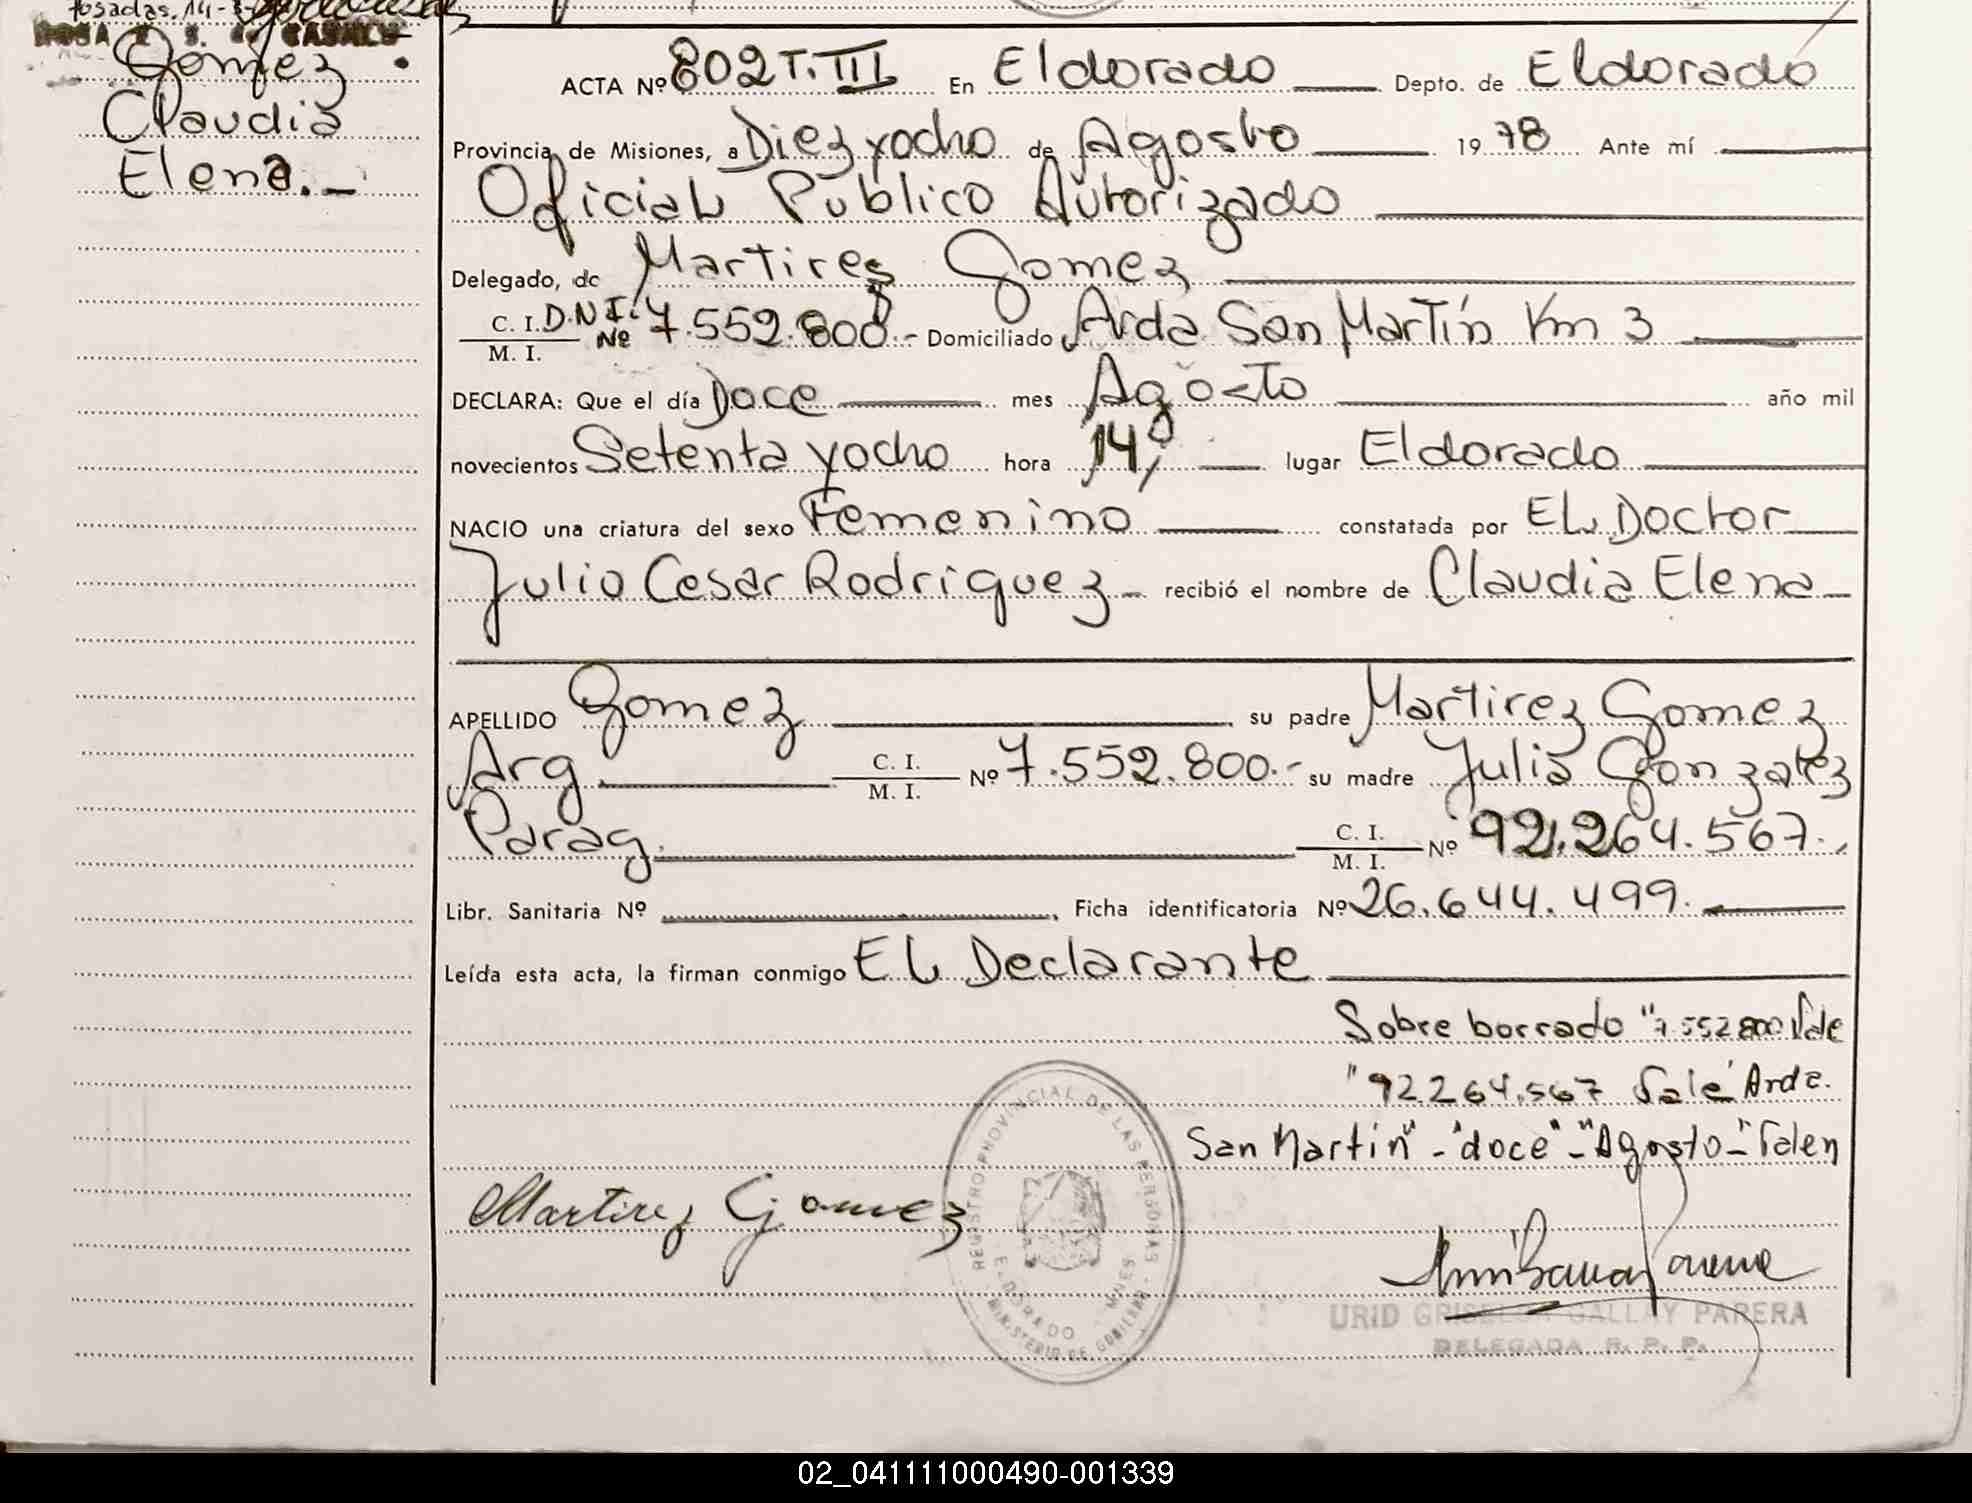 Posadas, 14-
ROSA E. S. de CASALS
Gomez
Claudia
Elena.-
ACTA Nº 802 T. III En Eldorado Depto. de Eldorado
Provincia de Misiones, a Diez yocho de Agosto 19 78 Ante mí
Oficial Publico Autorizado
Delegado, de Martires Gomez
C. I. D.N.I. Nº 7.552.800.- Domiciliado Avda San Martín Km 3
M. I.
DECLARA: Que el día Doce mes Agosto año mil
novecientos Setenta yocho hora 14, lugar Eldorado
NACIO una criatura del sexo Femenino constatada por El Doctor
Julio Cesar Rodriguez - recibió el nombre de Claudia Elena
APELLIDO Gomez su padre Martirez Gomez
Arg. C. I. Nº 7.552.800.- su madre Julia Gonzalez
M. I.
Parag. C. I. Nº 92.264.567.,
M. I.
Libr. Sanitaria Nº , Ficha identificatoria Nº 26.644.499.
Leída esta acta, la firman conmigo El Declarante
Sobre borrado "7.552.800 Vale
"92.264.567 Vale" Avda.
San Martín" - "doce" - "Agosto - "Valen
Martirez Gomez
REGISTRO PROVINCIAL DE LAS PERSONAS
ELDORADO MNES
MINISTERIO DE GOBIERNO
URID GRISELDA GALLAY PARERA
DELEGADA R. P. P.
02_041111000490-001339